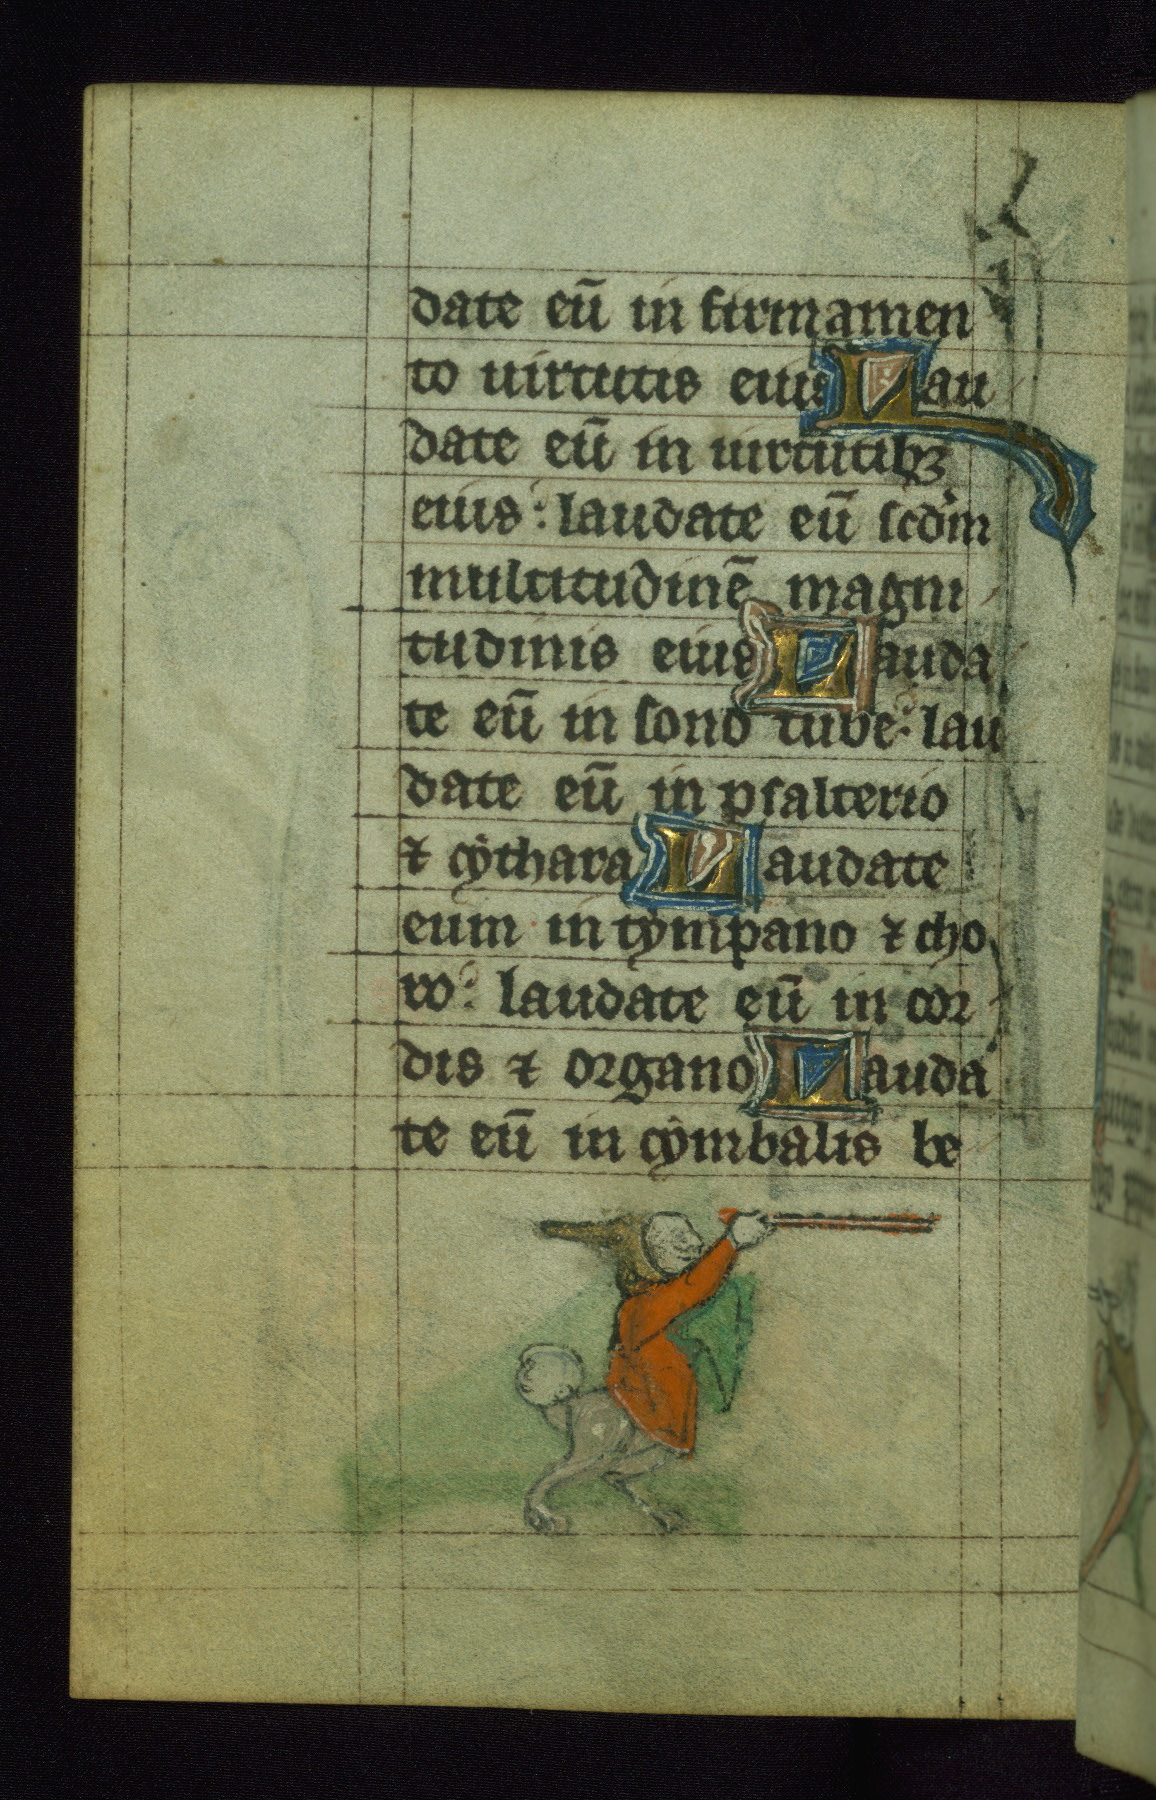 date eū in firmamen
to uirtutis eius Lau
date eū in uirtutibꝫ
eius: laudate eū scd̓m
multitudinē magni
tudinis eius Lauda
te eū in sono tube: lau
date eū in psalterio
⁊ cẏthara Laudate
eum in tẏmpano ⁊ cho
ro: laudate eū in cor
dis ⁊ organo Lauda
te eū in cẏmbalis be